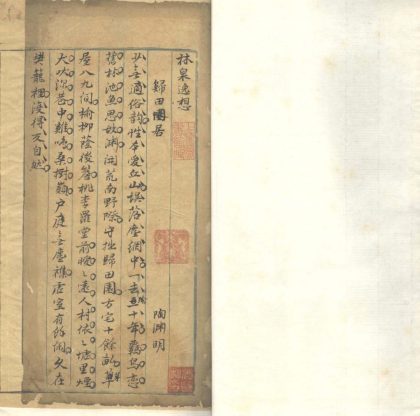 林泉逸想
歸田園居 陶淵明
少无適俗韵性本愛丘山誤落塵網中一去三十年羈鳥恋
舊林池魚思故淵開荒南野際守拙歸田園方宅十餘畝草
屋八九间榆柳蔭後簷桃李羅堂前曖〻遠人村依〻墟里煙
犬吠深巷中雞鳴桑樹巔戶庭无塵襍虛室有餘闲久在
樊籠裡復得反自然